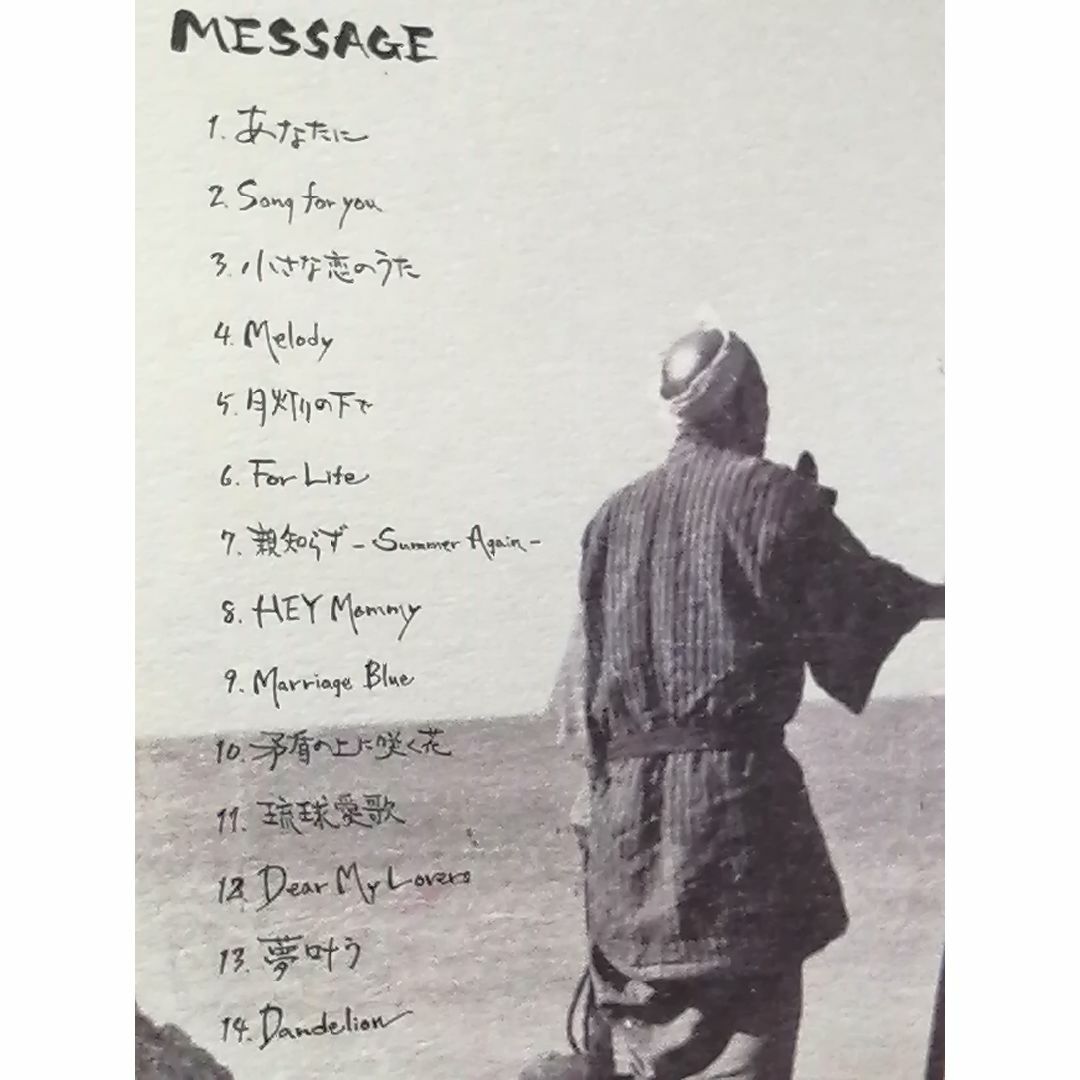 MESSAGE
1. あなたに
2. Song for you
3. 小さな恋のうた
4. Melody
5. 月灯りの下で
6. For Life
7. 親知らず - Summer Again -
8. HEY Mommy
9. Marriage Blue
10. 矛盾の上に咲く花
11. 琉球愛歌
12. Dear My Lovers
13. 夢叶う
14. Dandelion